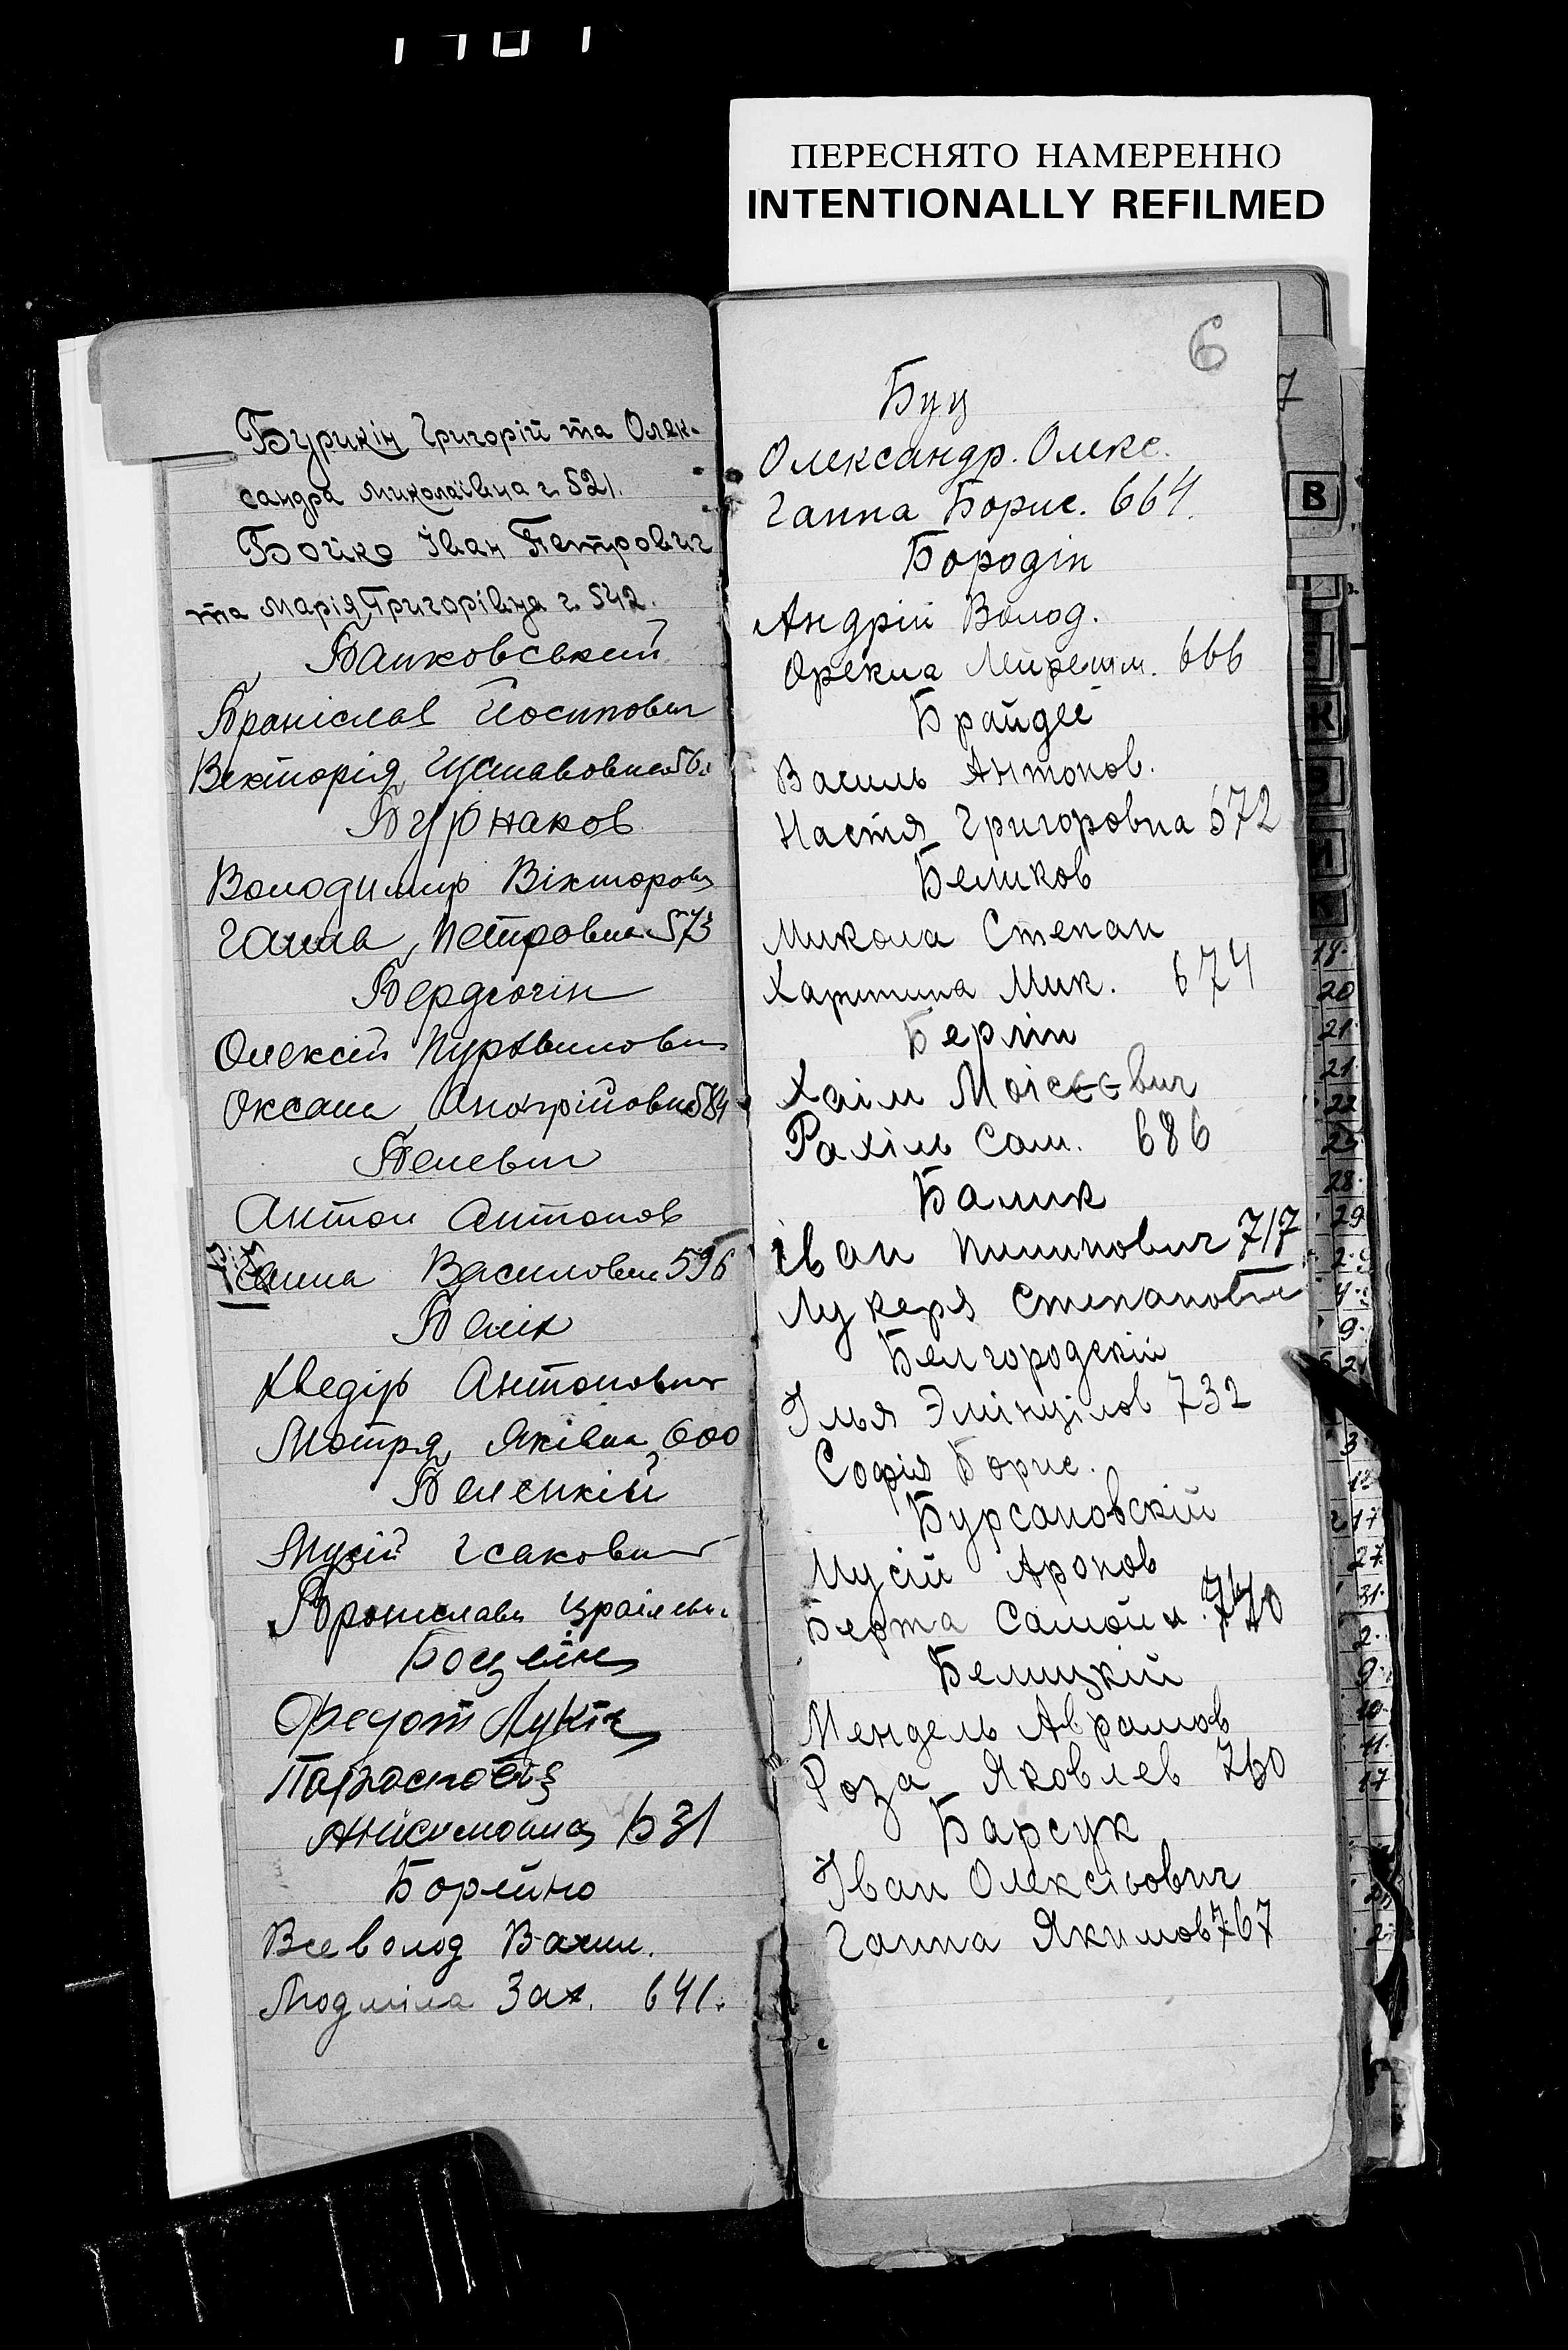 ПЕРЕСНЯТО НАМЕРЕННО
INTENTIONALLY REFILMED
Бурикін Григорій та Олек-
сандра Миколаївна г. 521.
Бойко Іван Петрович
та Марія Григорівна г. 542.
Банковський
Броніслав Йосипович
Вікторія Густавовна
Бурнаков
Володимир Вікторов
Ганна Петровна 573
Бердючін
Олексій
Оксана Андрійовна 584
Белевич
Антон Антонов
Ганна Василовна 596
Белік
Хведір Антонович
Мотря Яківна 600
Беленкій
Мусій Ісакович
Броніслава Ізраілевн
Федот Лукіч
Парасковія
631
Борейко
Всеволод Вачил.
Людміла Зах. 641.
6
7
Буц
Олександр. Олекс.
Ганна Борис. 664.
Бородін
Андрій Волод.
666
Брайдеє
Василь Антонов.
Настя Григоровна 672
Беликов
Микола Степан
Харитина Мик. 674
Берлін
Хаім Моісеевич
Рахіль Сам. 686
Балик
Іван Пилипович 717
Лукеря Степановна
Белгородскій
Ілья 732
Софія Борис.
Бурсановскій
Мусій Аронов
Берта Самойл.
Белицкій
Мендель Аврамов
Роза Яковлев 760
Барсук
Іван Олексійович
Ганна Якимов 767
В
К
18.
20
21.
21.
22
28.
29